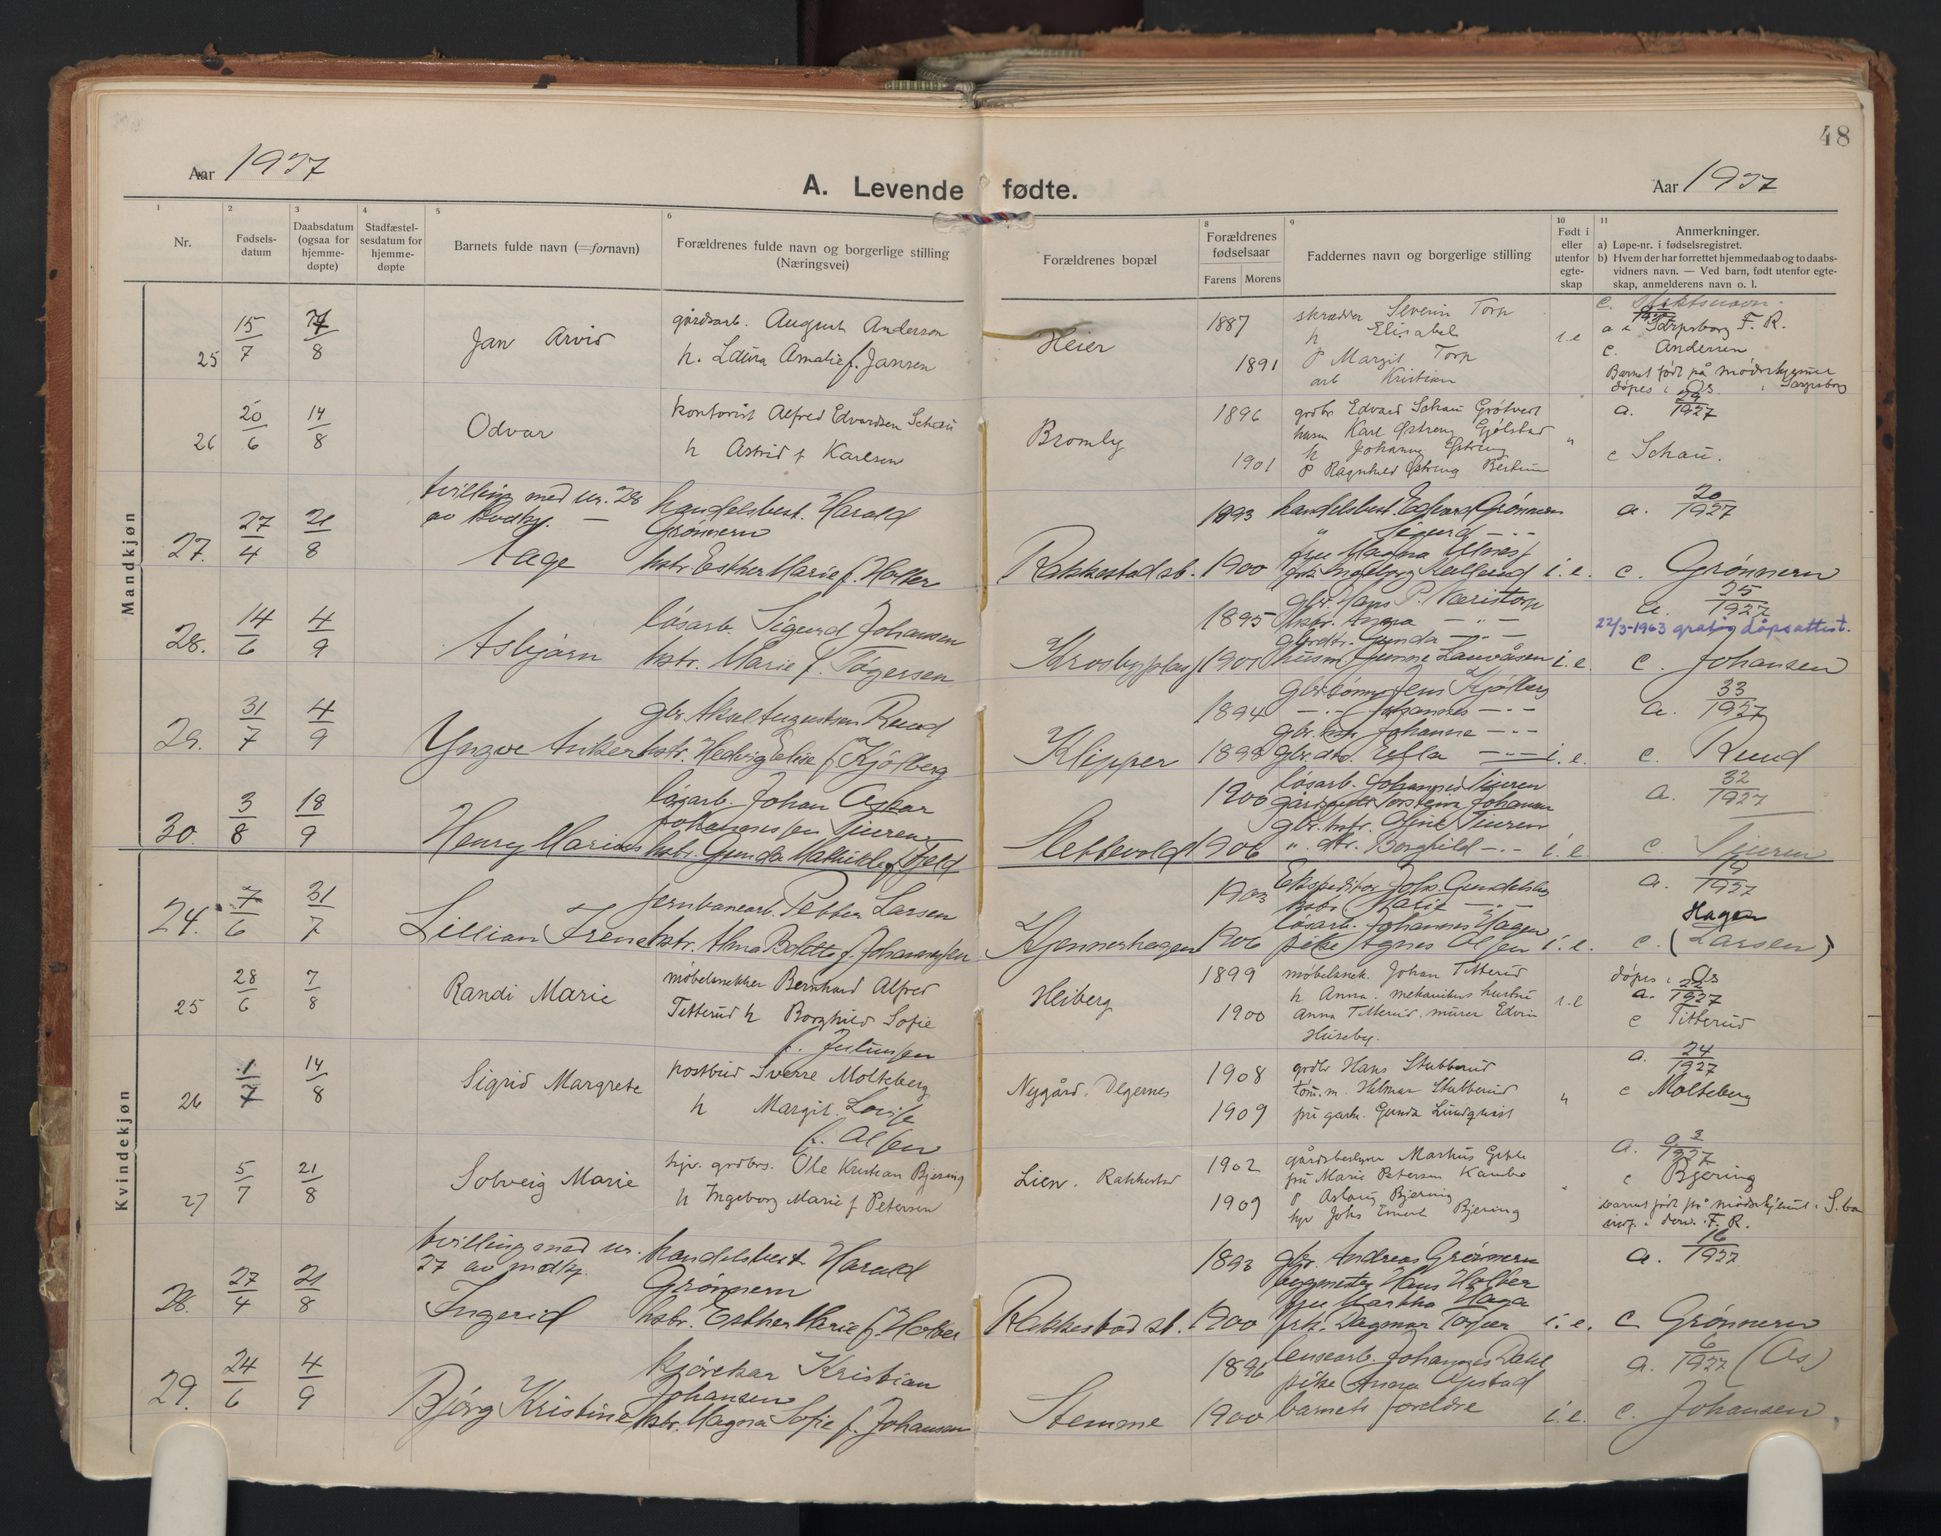 48
Aar 1927
A. Levende fødte.
Aar 1927
1 2 3 4 5 6 8 9 10 11
Nr.
Fødsels-
datum
Daabsdatum
(ogsaa for
hjemme-
døpte)
Stadfæstel-
sesdatum for
hjemme-
døpte
Barnets fulde navn (=fornavn)
Forældrenes fulde navn og borgerlige stilling
(Næringsvei)
Forældrenes bopæl
Forældrenes
fødselsaar
Farens Morens
Faddernes navn og borgerlige stilling
Født i
eller
utenfor
egte-
skap
Anmerkninger.
a) Løpe-nr. i fødselsregistret.
b) Hvem der har forrettet hjemmedaab og to daabs-
vidners navn. — Ved barn, født utenfor egte-
skap, anmelderens navn o. l.
Mandkjøn
25 15/7 /8 Jan Arvid
gårdsarb. August Anderson
h. Laura Amalie f. Jansen
Heier
1887 1891
skrædder Severin Torp
h Elisabet
P Margit Torp
arb Kristian
i.e
a i Sarpsborg F. R.
c. Andersen
Barnet født på
døpes i Os i Sarpsborg
26 20/6 14/8 Odvar
kontorist Alfred Edvardsen Schau
h Astrid f Karlsen
Bromby
1896 1901
grdbr Edvard Schau Grøtvedt
husm Karl Østreng Gjølstad
h Johanne Østreng
P Ragnhild Østreng
"
a. 29/1927
c Schau.
27. 27/4 21/8
tvilling med nr. 28
av kvdkj. —
Aage
handelsbest. Harald
Grønnern
hstr. Esther Marie f. Holter
Rakkestad st.
1893 1900
handelsbest. Edvard Grønnern
" Sigurd -..-
fru Magna
frk. Ingeborg
i. e.
a. 20/1927
c. Grønnern
28. 14/6 4/9 Asbjørn
løsarb. Sigurd Johansen
hstr. Marie f. Tøgersen
Krosbyplass
1895 1901
gbr. Hans P. Næristorp
hstr. Anna -..-
gbrdtr. Gunda -..-
husm Gunne
i. e.
a. 25/1927
22/3-1963 gratis dåpsattest.
c. Johansen
29. 31/7 4/9 Yngve Anker
gbr. Aksel Augustsen Ruud
hstr. Hedvig Elise f Kjølberg
Klipper
1894 1898
gbr.sønn Jens Kjølberg
-..- Johannes -..-
gbr. hstr Johanne -..-
gbr. dtr. Ella -..-
i. e.
a. 33/1927
c. Ruud
30. 3/8 18/9 Henry Marius
løsarb. Johan Oskar
Johannessen Tjuren
hstr. Gunda Mathilde f. Fjeld
Slettevold
1900 1906
løsarb. Johannes Tjuren
gårdbruker Torstein Johansen
gbr. hstr. Oline Tjuren
". dtr. Borghild -..-
i. e.
a. 32/1927
c. Tjuren
Kvindekjøn
24. 7/6 31/7 Lillian Irene
jernbanearb. Petter Larsen
hstr. Alma Bolette f. Johannessen
Kjennerhagen
1903 1906
Ekspeditør Johs. Gundelsby
hstr. Marie -..-
løsarb. Johannes Hagen
pike Agnes Olsen
i. e.
a. 19/1927
Hagen
c. (Larsen)
25 28/6 7/8 Randi Marie
møbelsnekker Bernhard Alfred
Titterud h Borghild Sofie
f. Juliussen
Heiberg
1899 1900
møbelsnek. Johan Titterud
h Anna. mekanikers hustru
Anna Titterud. murer Edvin
Huseby.
i.e
døpes i Os
a. 22/1927
c Titterud
26 1/7 14/8 Sigrid Margrete
postbud Sverre Molteberg
h Margit Lovise
f. Olsen
Nygård. Degernes
1908 1909
grdbr Hans Stubberud
tøm. m. Helmar Stubberud
fru garb. Gunda Lundqvist
"
a. 24/1927
c Molteberg
27 5/7 21/8 Solveig Marie
bgr. grdbrs. Ole Kristian Bjering
h Ingeborg Marie f Petersen
Lien. Rakkestad
1902 1909
gårdsbestyrer Markus Gippe
fru Marie Petersen Kambo
P Aslaug Bjering
bgr Johs Bjering
a. 2/1927
c Bjering
barnet født på
i derv. F. R.
28. 27/4 21/8
tvilling med nr.
27 av mdkj.
Ingerid
handelsbest. Harald
Grønnern
hstr. Esther Marie f. Holter
Rakkestad st.
1893 1900
gbr. Andreas Grønnern
byggmester Hans Holter
fru Martha Haga
frk. Dagmar Torjær
i. e.
a. 16/1927
c Grønnern
29. 24/6 4/9 Bjørg Kristine
kjørekar Kristian
Johansen
hstr. Magna Sofie f. Johansen
Stemme
1896 1900
lensearb. Johannes Dahl
pike Anna Opstad
barnets foreldre
i. e.
a. 6/1927 (Os)
c. Johansen